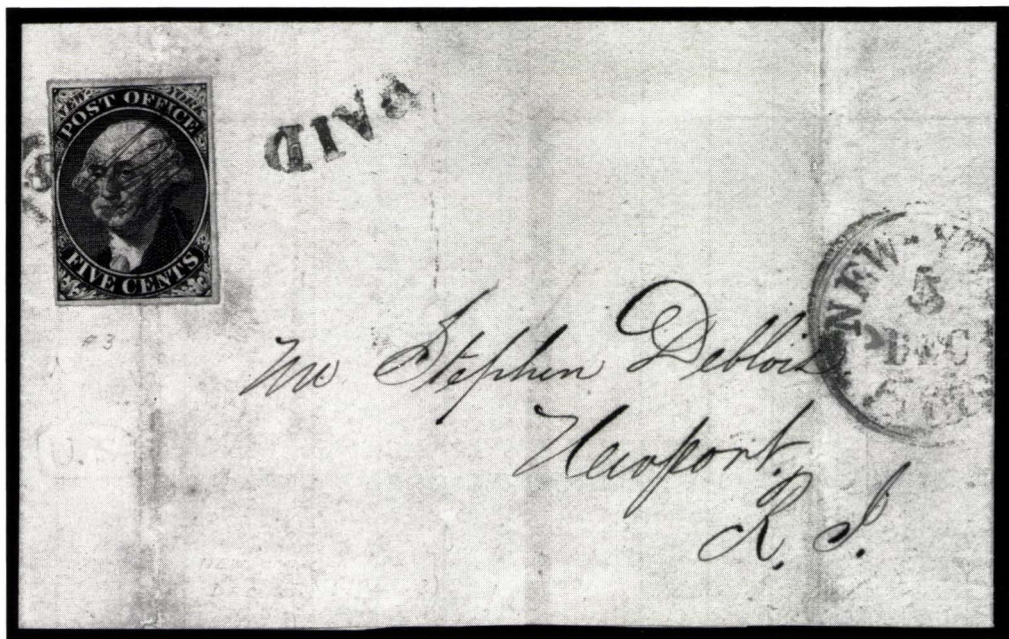 NEW-YORK
POST OFFICE
FIVE CENTS
PAID
NEW-YO
5
DEC
5 cts
#3
Mr Stephen Deblois
Newport,
R. I.